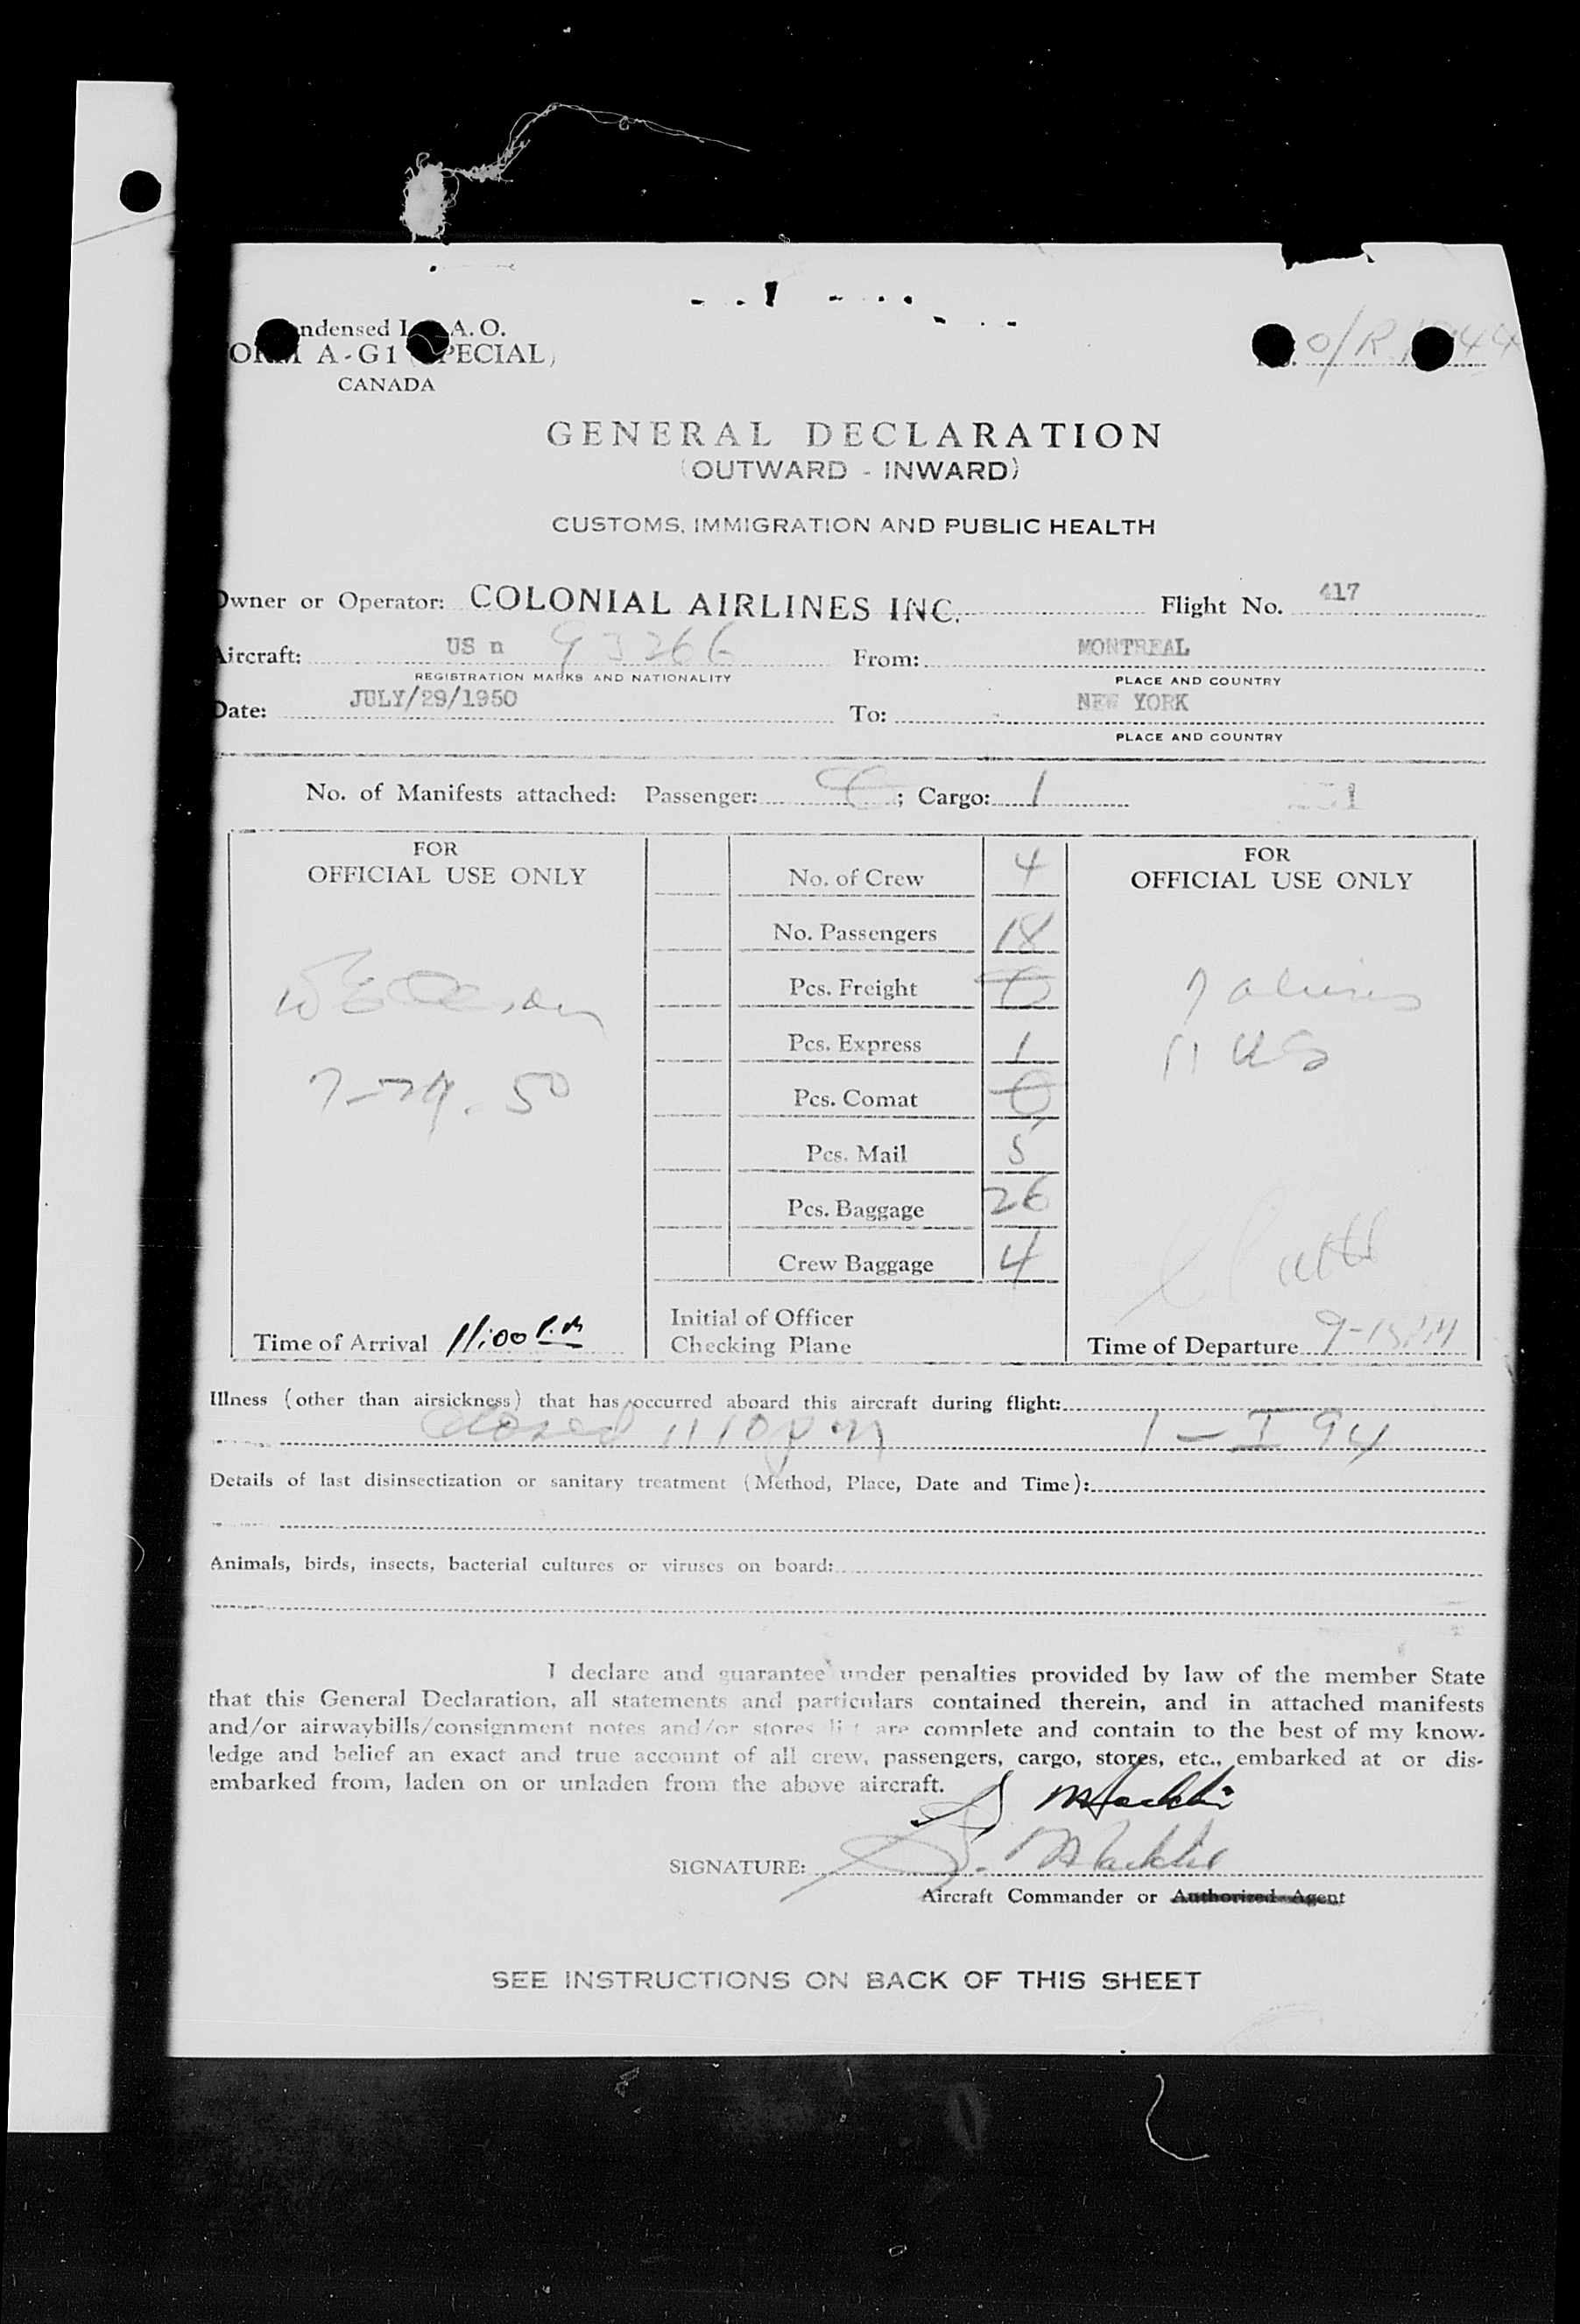 ndensed I A. O.
ORM A-G1 (SPECIAL)
CANADA
No. O/R 44
GENERAL DECLARATION
(OUTWARD - INWARD)
CUSTOMS, IMMIGRATION AND PUBLIC HEALTH
Owner or Operator: COLONIAL AIRLINES INC. Flight No. 417
Aircraft: US n 93266 From: MONTREAL
REGISTRATION MARKS AND NATIONALITY PLACE AND COUNTRY
Date: JULY/29/1950 To: NEW YORK
PLACE AND COUNTRY
No. of Manifests attached: Passenger: ; Cargo: 1
FOR
OFFICIAL USE ONLY
7-29. 50
Time of Arrival 11:00 P.M
No. of Crew 4
No. Passengers 18
Pcs. Freight 0
Pcs. Express 1
Pcs. Comat 0
Pcs. Mail 5
Pcs. Baggage 26
Crew Baggage 4
Initial of Officer
Checking Plane
FOR
OFFICIAL USE ONLY
7 aliens
11 USC
Time of Departure
Illness (other than airsickness) that has occurred aboard this aircraft during flight:
closed 1110 pm 1 - I 94
Details of last disinsectization or sanitary treatment (Method, Place, Date and Time):
Animals, birds, insects, bacterial cultures or viruses on board:
I declare and guarantee under penalties provided by law of the member State
that this General Declaration, all statements and particulars contained therein, and in attached manifests
and/or airwaybills/consignment notes and/or stores list are complete and contain to the best of my know-
ledge and belief an exact and true account of all crew, passengers, cargo, stores, etc., embarked at or dis-
embarked from, laden on or unladen from the above aircraft.
SIGNATURE:
Aircraft Commander or Authorized Agent
SEE INSTRUCTIONS ON BACK OF THIS SHEET